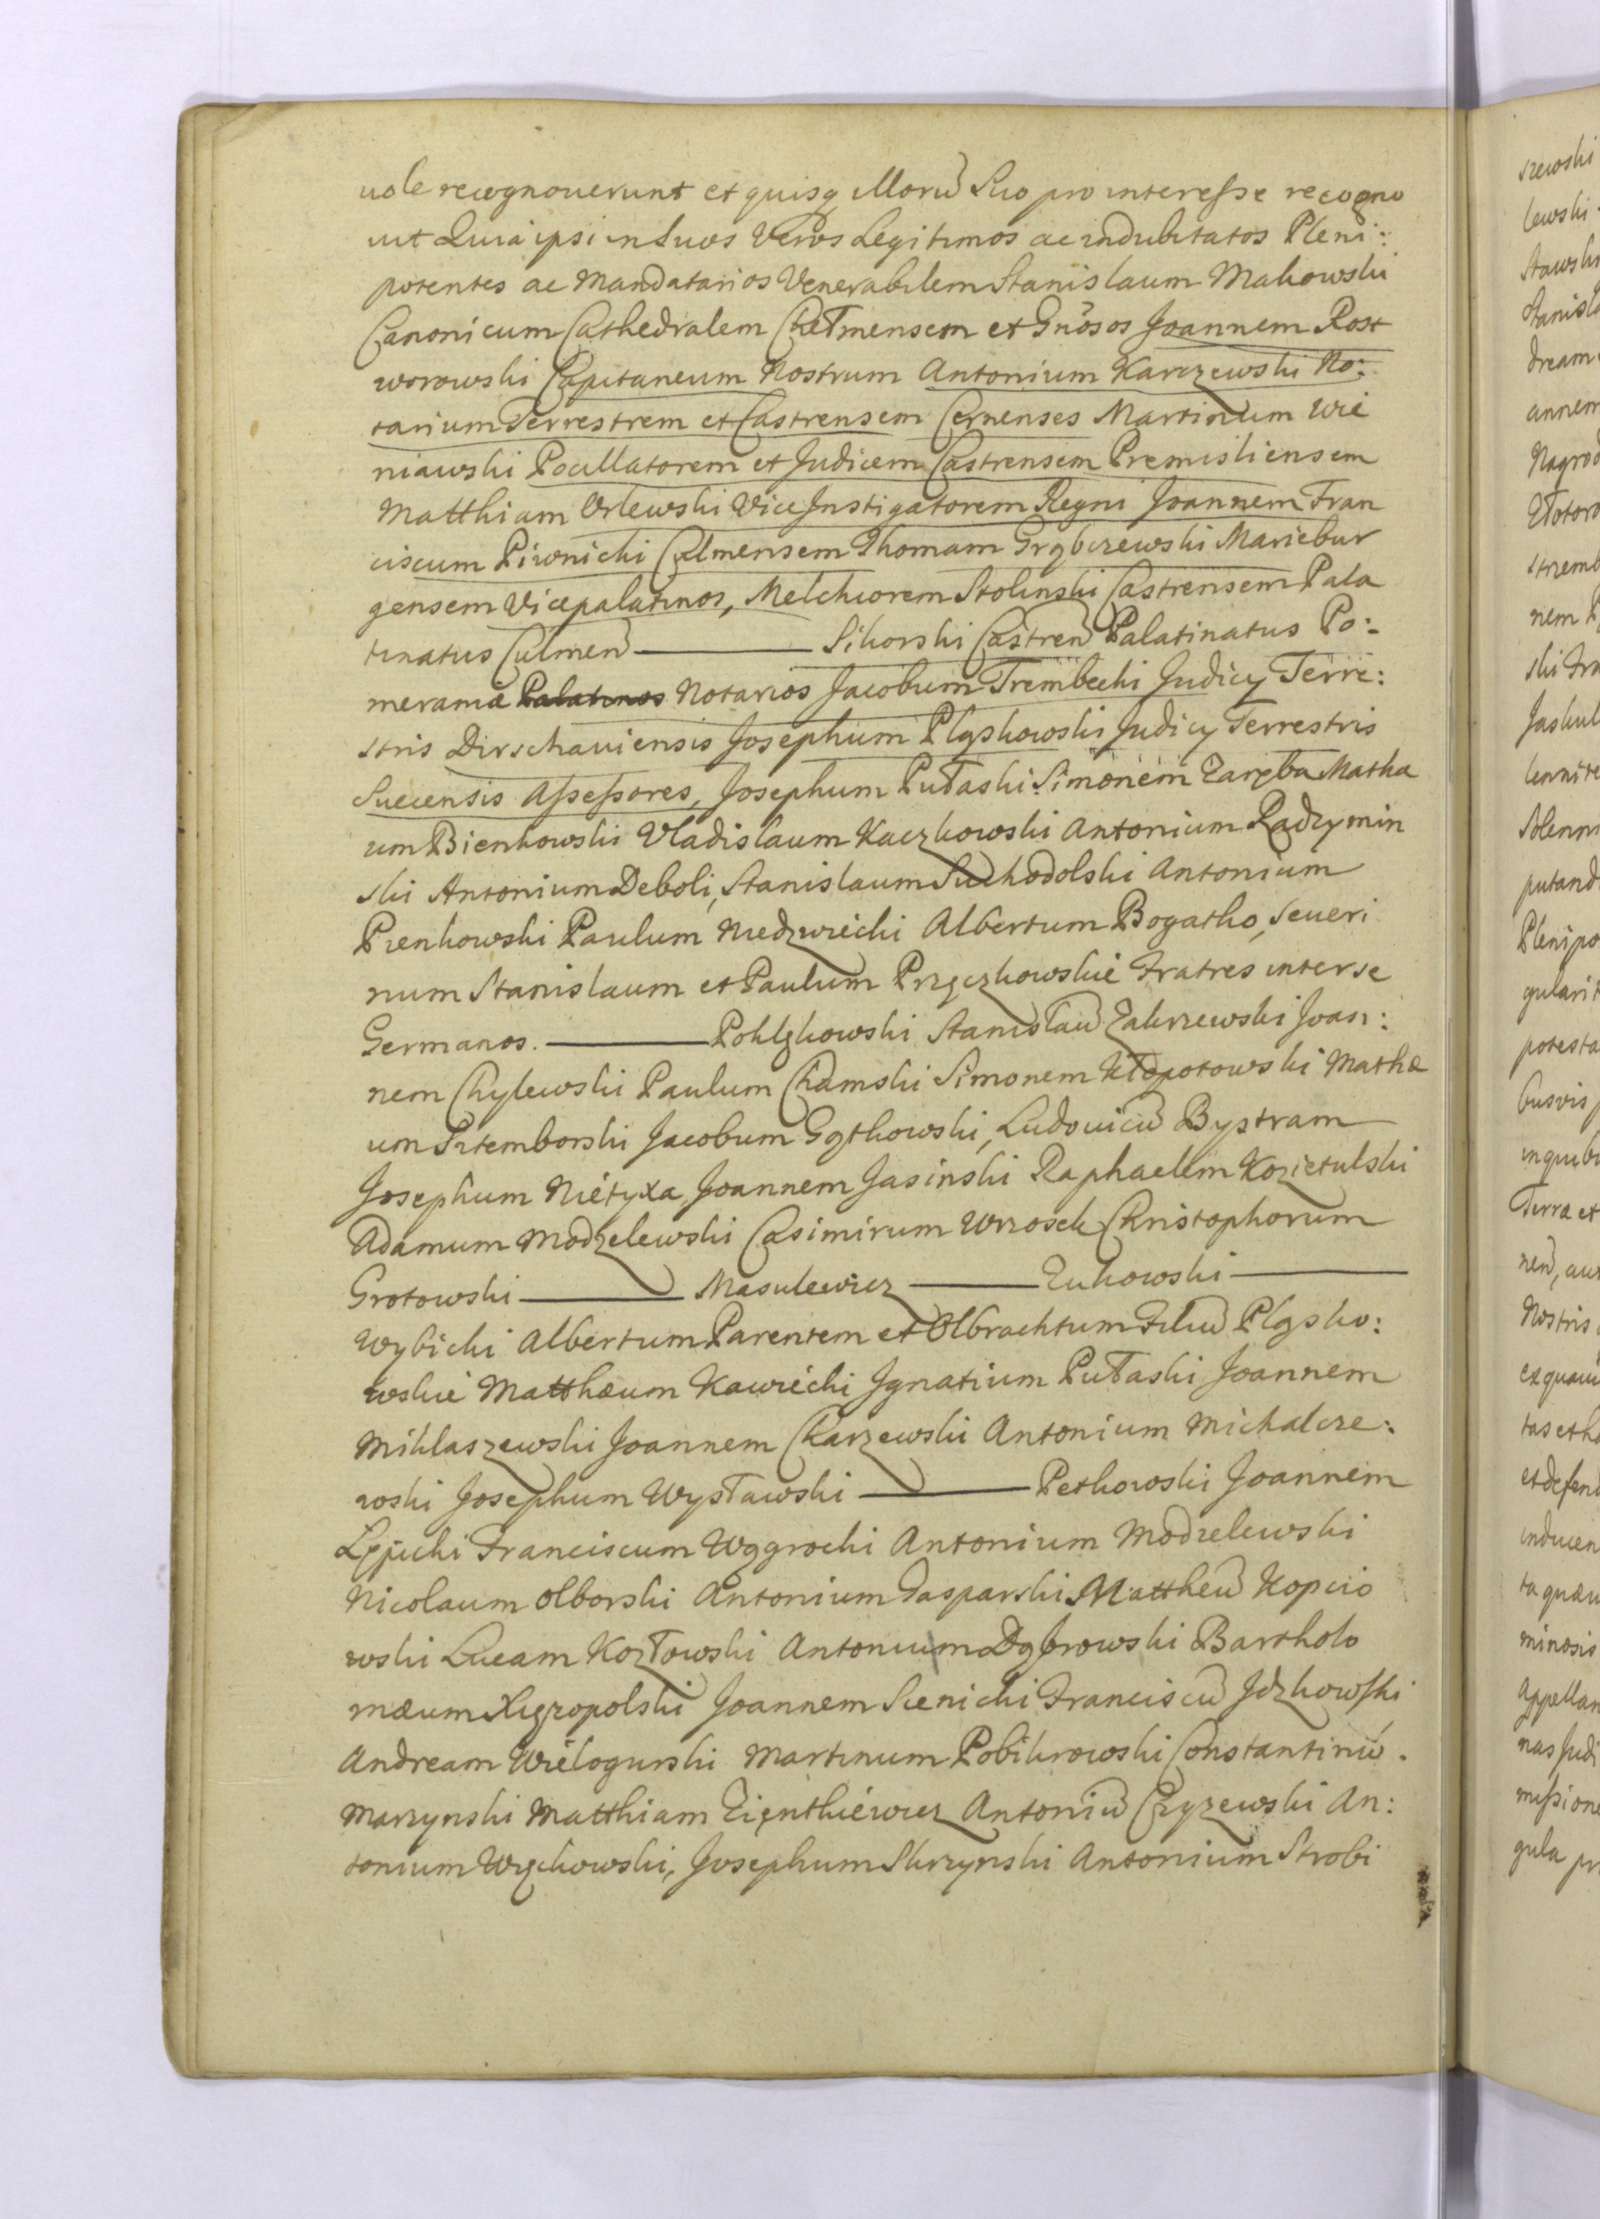 uole recognouerunt et quisq Illorū Suo pro interesse recogno
uit Quia ipsi in Suos Veros Legitimos ac indubitatos Pleni:
potentes ac Mandatarios Venerabilem Stanislaum Makowski
Canonicum Cathedralem Chełmensem et Gnōsos Joannem Rost
worowski Capitaneum Nostrum Antonium Karczewski No:
tarium Terrestrem et Castrensem Cernenses Martinum Wie
niawski Pocillatorem et Judicem Castrensem Premisliensem
Matthiam Orlewski Vice Instigatorem Regni Joannem Fran
ciscum Piwnicki Culmensem Thomam Grąbczewski Mariebur
gensem Vicepalatinos, Melchiorem Stolinski Castrensem Pala
tinatus Culmen̄ ——— Sikorski Castren̄ Palatinatus Po:
meraniæ Palatinos Notarios Jacobum Trembecki Judicij Terre:
stris Dirschauiensis Josephum Pląskowski Judicij Terrestris
Suecensis Assessores, Josephum Pułaski Simonem Zaręba Mathæ
um Bienkowski Vladislaum Kaczkowski Antonium Radzymin
ski Antonium Deboli, Stanislaum Suchodolski Antonium
Pienkowski Paulum Niedzwiecki Albertum Bogatko, Seueri
num Stanislaum et Paulum Prączkowskie Fratres inter se
Germanos. ——— Poklękowski Stanisłaū Zakrzewski Joan:
nem Chylewski Paulum Chamski Simonem Kłopotowski Mathæ
um Przemborski Jacobum Gątkowski, Ludouicū Bystram
Josephum Nietyxa, Joannem Jasinski Raphaelem Kozietulski
Adamum Modzelewski Casimirum Wrzosek Christophorum
Grotowski ——— Masulewicz ——— Zukowski ———
Wybicki Albertum Parentem et Olbrachtum Filiū Pląsko:
wskie Matthæum Kawiecki Ignatium Pułaski Joannem
Miklaszewski Joannem Charzewski Antonium Michalcze:
wski Josephum Wysławski ——— Petkowski Joannem
Łęjicki Franciscum Wągrocki Antonium Modzelewski
Nicolaum Olborski Antonium Gasparski Mattheū Kopcio
wski Lucam Kozłowski Antonium Dąbrowski Bartholo
mæum Xięzopolski Joannem Scenicki Franciscū Jdzkowski
Andream Wielogurski Martinum Pobikrowski Constantinū.
Marzynski Matthiam Zięntkiewicz Antoniū Czyzewski An:
tonium Więckowski, Josephum Skrzynski Antonium Strobi